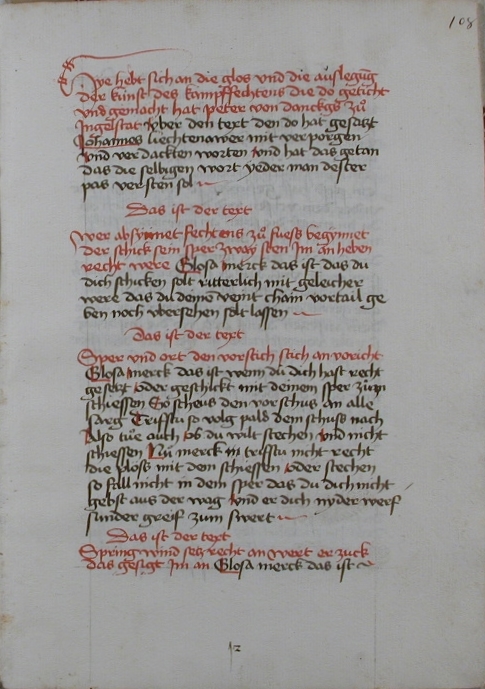 108
Hye hebt sich an die glos vnd die auslegũg
der kunst des kampffechtens die do geticht
vnd gemacht hat peter von danckgs zů
Ingelstat vber den text den do hat gesatzt
Johannes liechtenawer mit verporgen
vnd verdackten worten vnd hat das getan
das die selbigen wort yeder man dester
pas versten sol
Das ist der text
Wer absynnet fechtens zů fuess begynnet
der schick sein sper zway sten Im an heben
recht were Glosa merck das ist das du
dich schicken solt ritterlich mit geleicher
were das du deinē veint chain vortail ge
ben noch vbersehen solt lassen
Das ist der text
Sper vnd ort den vorstich stich an voricht
Glosa merck das ist wenn du dich hast recht
gesetzt oder geschickt mit deinem sper zum
schiessen So scheus den vorschus an alle
sarg Trifstu so volg pald dem schuss nach
Also tue auch ob du wilt stechen vnd nicht
schiessen Nu merck in trifstu nicht recht
die ploss mit den schiessen oder stechen
so fall nicht in dem sper das du dich nicht
gebst aus der wag vnd er dich nyder werf
sunder greif zum swert
Das ist der text
Spring wind setz recht an wert er zuck
das gesigt Im an Glosa merck das ist